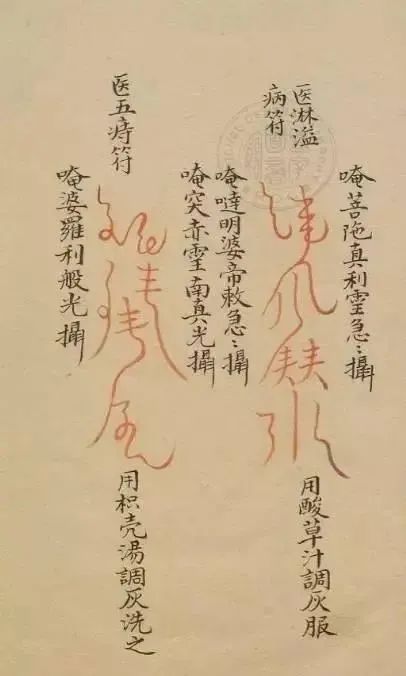 医淋溢
病符
唵菩陁真利霊急〻攝
唵噠明婆帝敕急〻攝
用酸草汁調灰服
医五痔符
唵突赤霊南真光攝
唵婆羅利般光攝
用枳壳湯調灰洗之